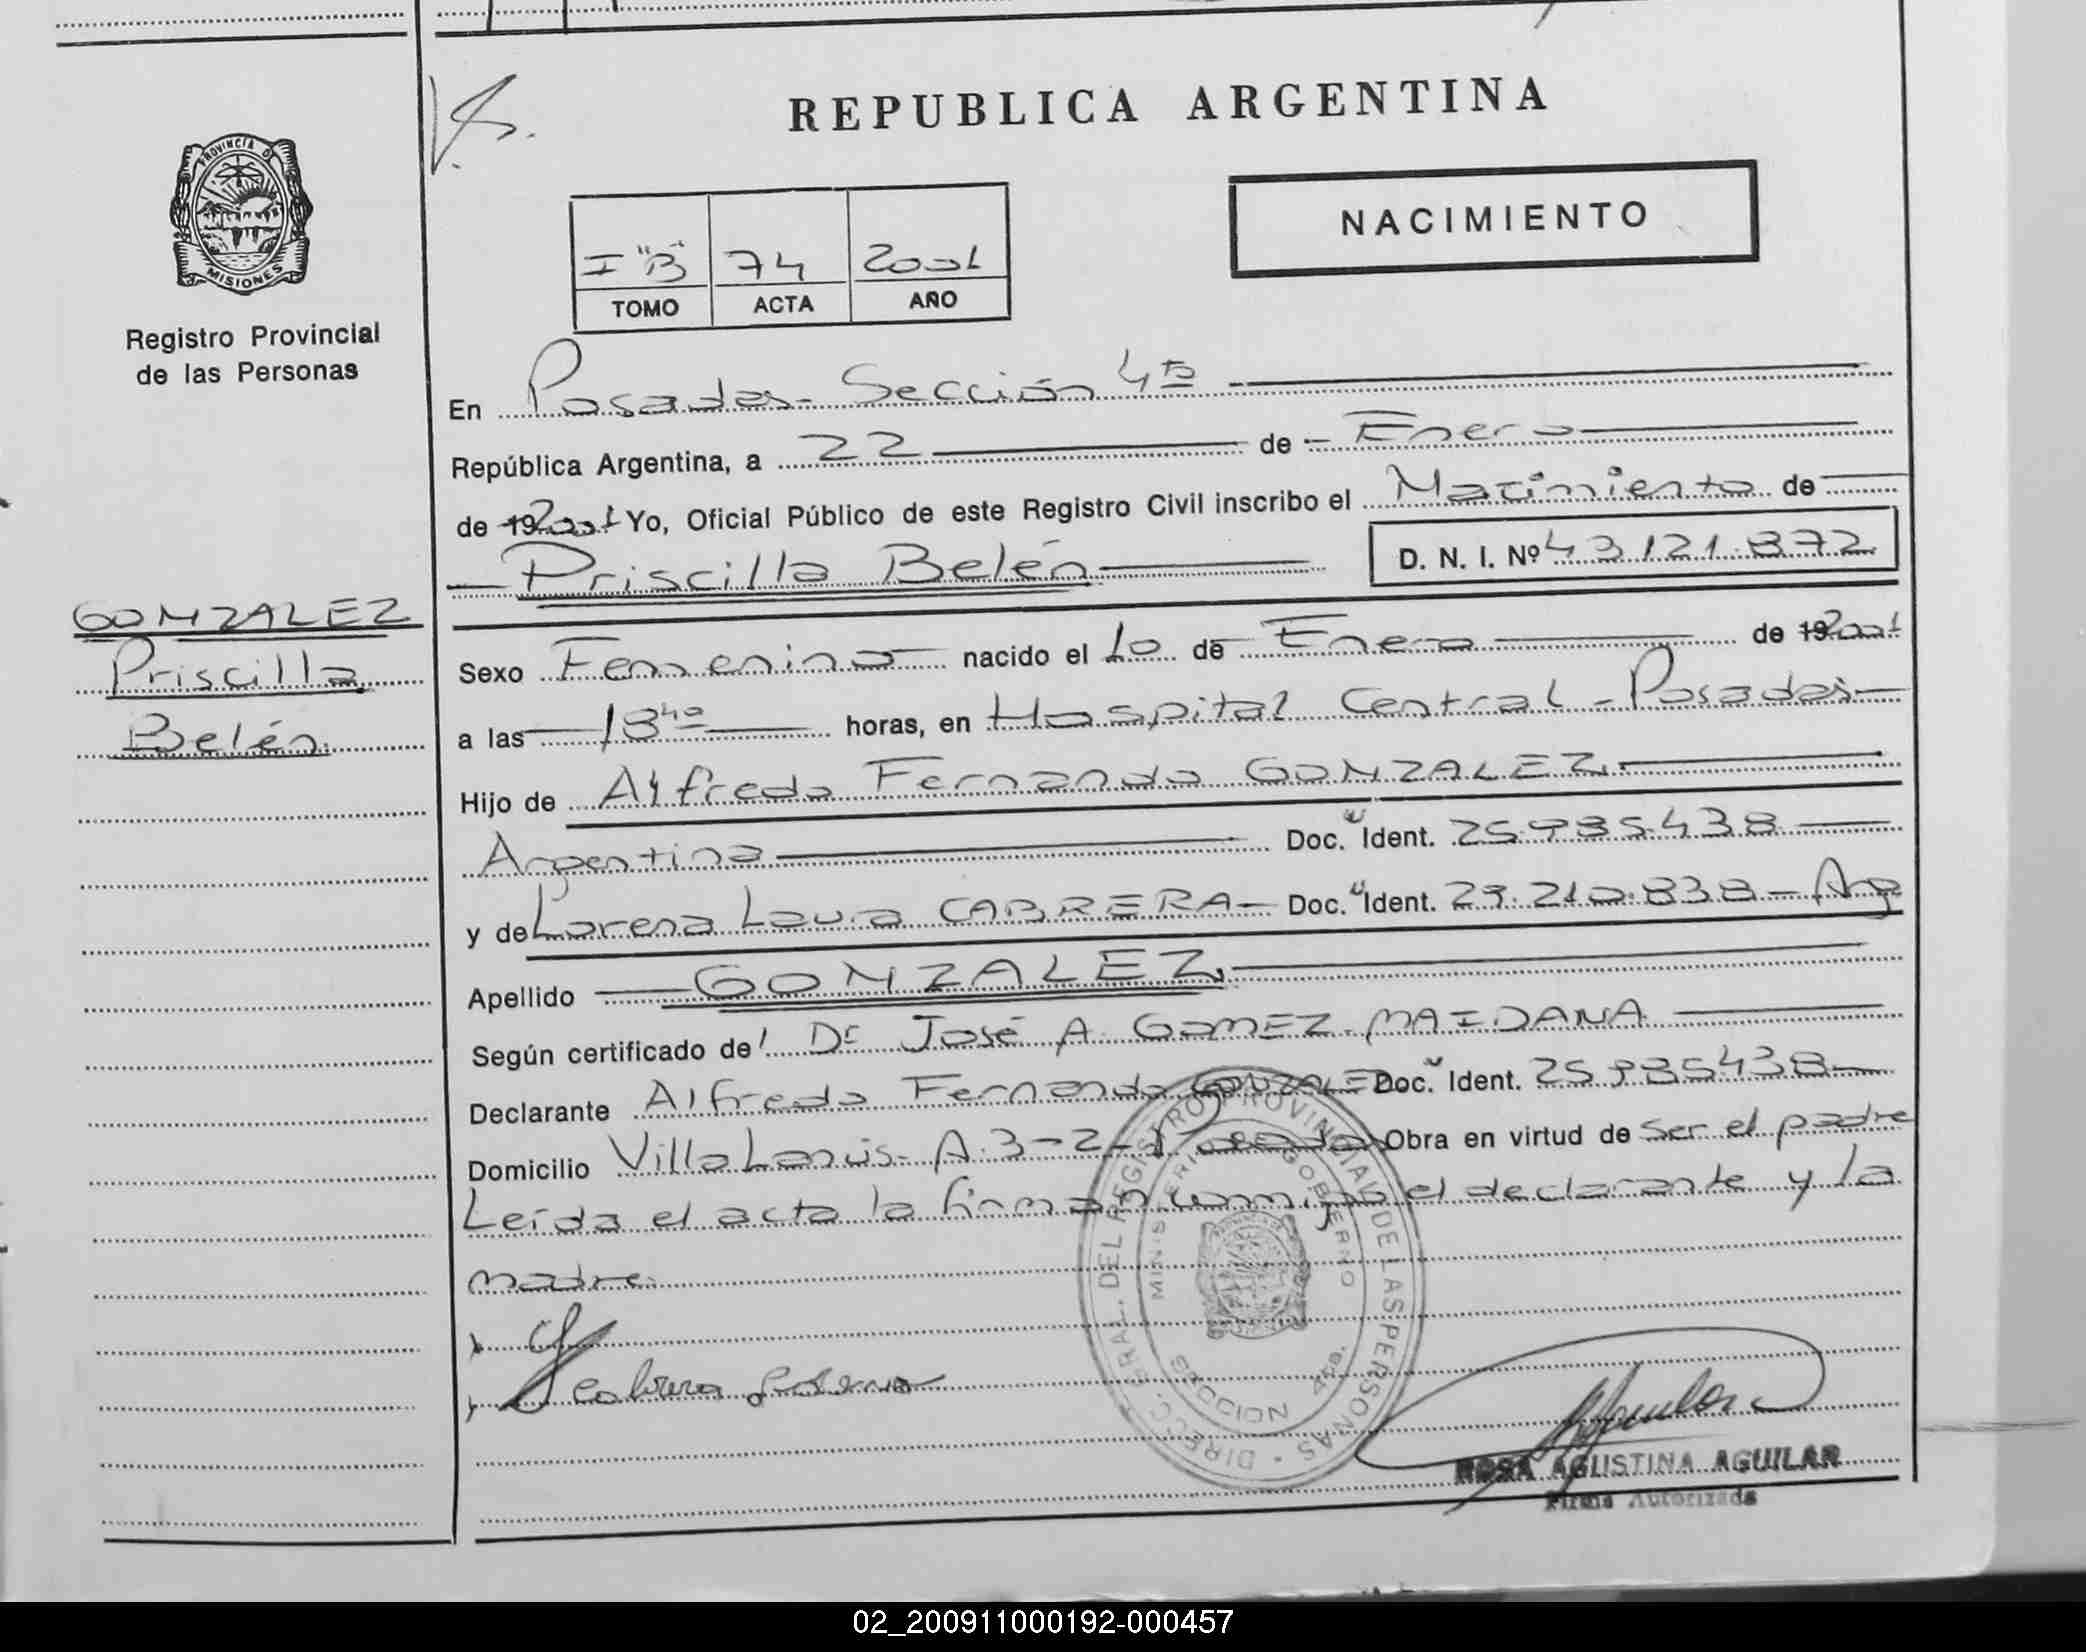 REPUBLICA ARGENTINA
PROVINCIA D
MISIONES
Registro Provincial
de las Personas
NACIMIENTO
I "B" 74 2001
TOMO ACTA AÑO
En Posadas - Sección 4ta
República Argentina, a 22 de Enero
de 192001 Yo, Oficial Público de este Registro Civil inscribo el Nacimiento de
Priscilla Belén D. N. I. Nº 43.121.872
GONZALEZ
Priscilla
Belén
Sexo Femenino nacido el 10 de Enero de 192001
a las 18 40 horas, en Hospital Central - Posadas
Hijo de Alfredo Fernando GONZALEZ
Argentina Doc. Ident. 25.985.438
y de Lorena Laura CABRERA - Doc. Ident. 29.210.838 - Arg
Apellido GONZALEZ
Según certificado de Dr José A. GOMEZ MAIDANA
Declarante Alfredo Fernando GONZALEZ Doc. Ident. 25985438
Domicilio Villa Lanús - A.3-2 - Posadas Obra en virtud de ser el padre
Leída el acta la firman conmigo el declarante y la
madre.
Cabrera Lorena
DIRECC. GRAL. DEL REGISTRO PROVINCIAL DE LAS PERSONAS
MINISTERIO GOBIERNO
SECCION 4ta.
ROSA AGUSTINA AGUILAR
Firma Autorizada
02_200911000192-000457